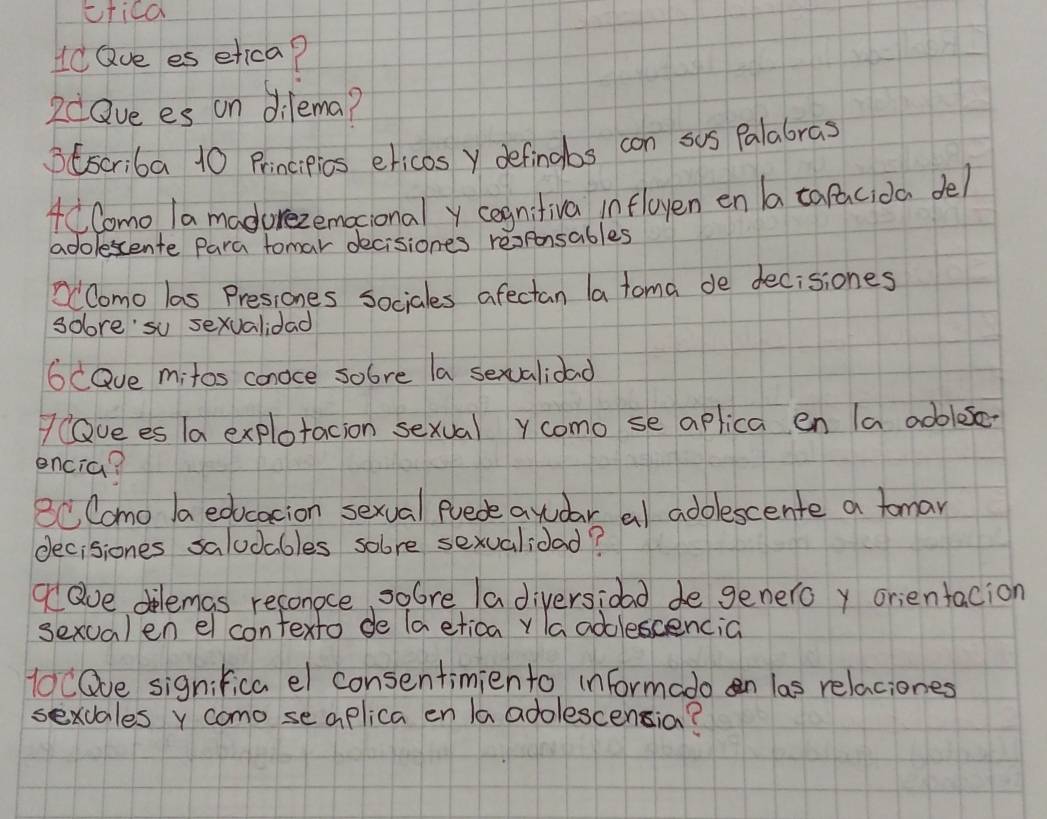 Etica
1¿Que es etica?
2¿Que es un dilema?
3Escriba 10 Principios eticos y definalos con sus Palabras
4¿Como la madurez emocional y cognitiva influyen en la capacida del
adolescente Para tomar decisiones responsables
5¿Como las Presiones sociales afectan la toma de decisiones
sobre su sexualidad
6¿Que mitos conoce sobre la sexualidad
7¿Que es la explotacion sexual y como se aplica en la adolesc-
encia?
8¿Como la educacion sexual Puede ayudar al adolescente a tomar
decisiones saludables sobre sexualidad?
9¿Que dilemas reconoce sobre la diversidad de genero y orientacion
sexual en el contexto de la etica y la adolescencia
10¿Que significa el consentimiento informado en las relaciones
sexuales y como se aplica en la adolescensia?